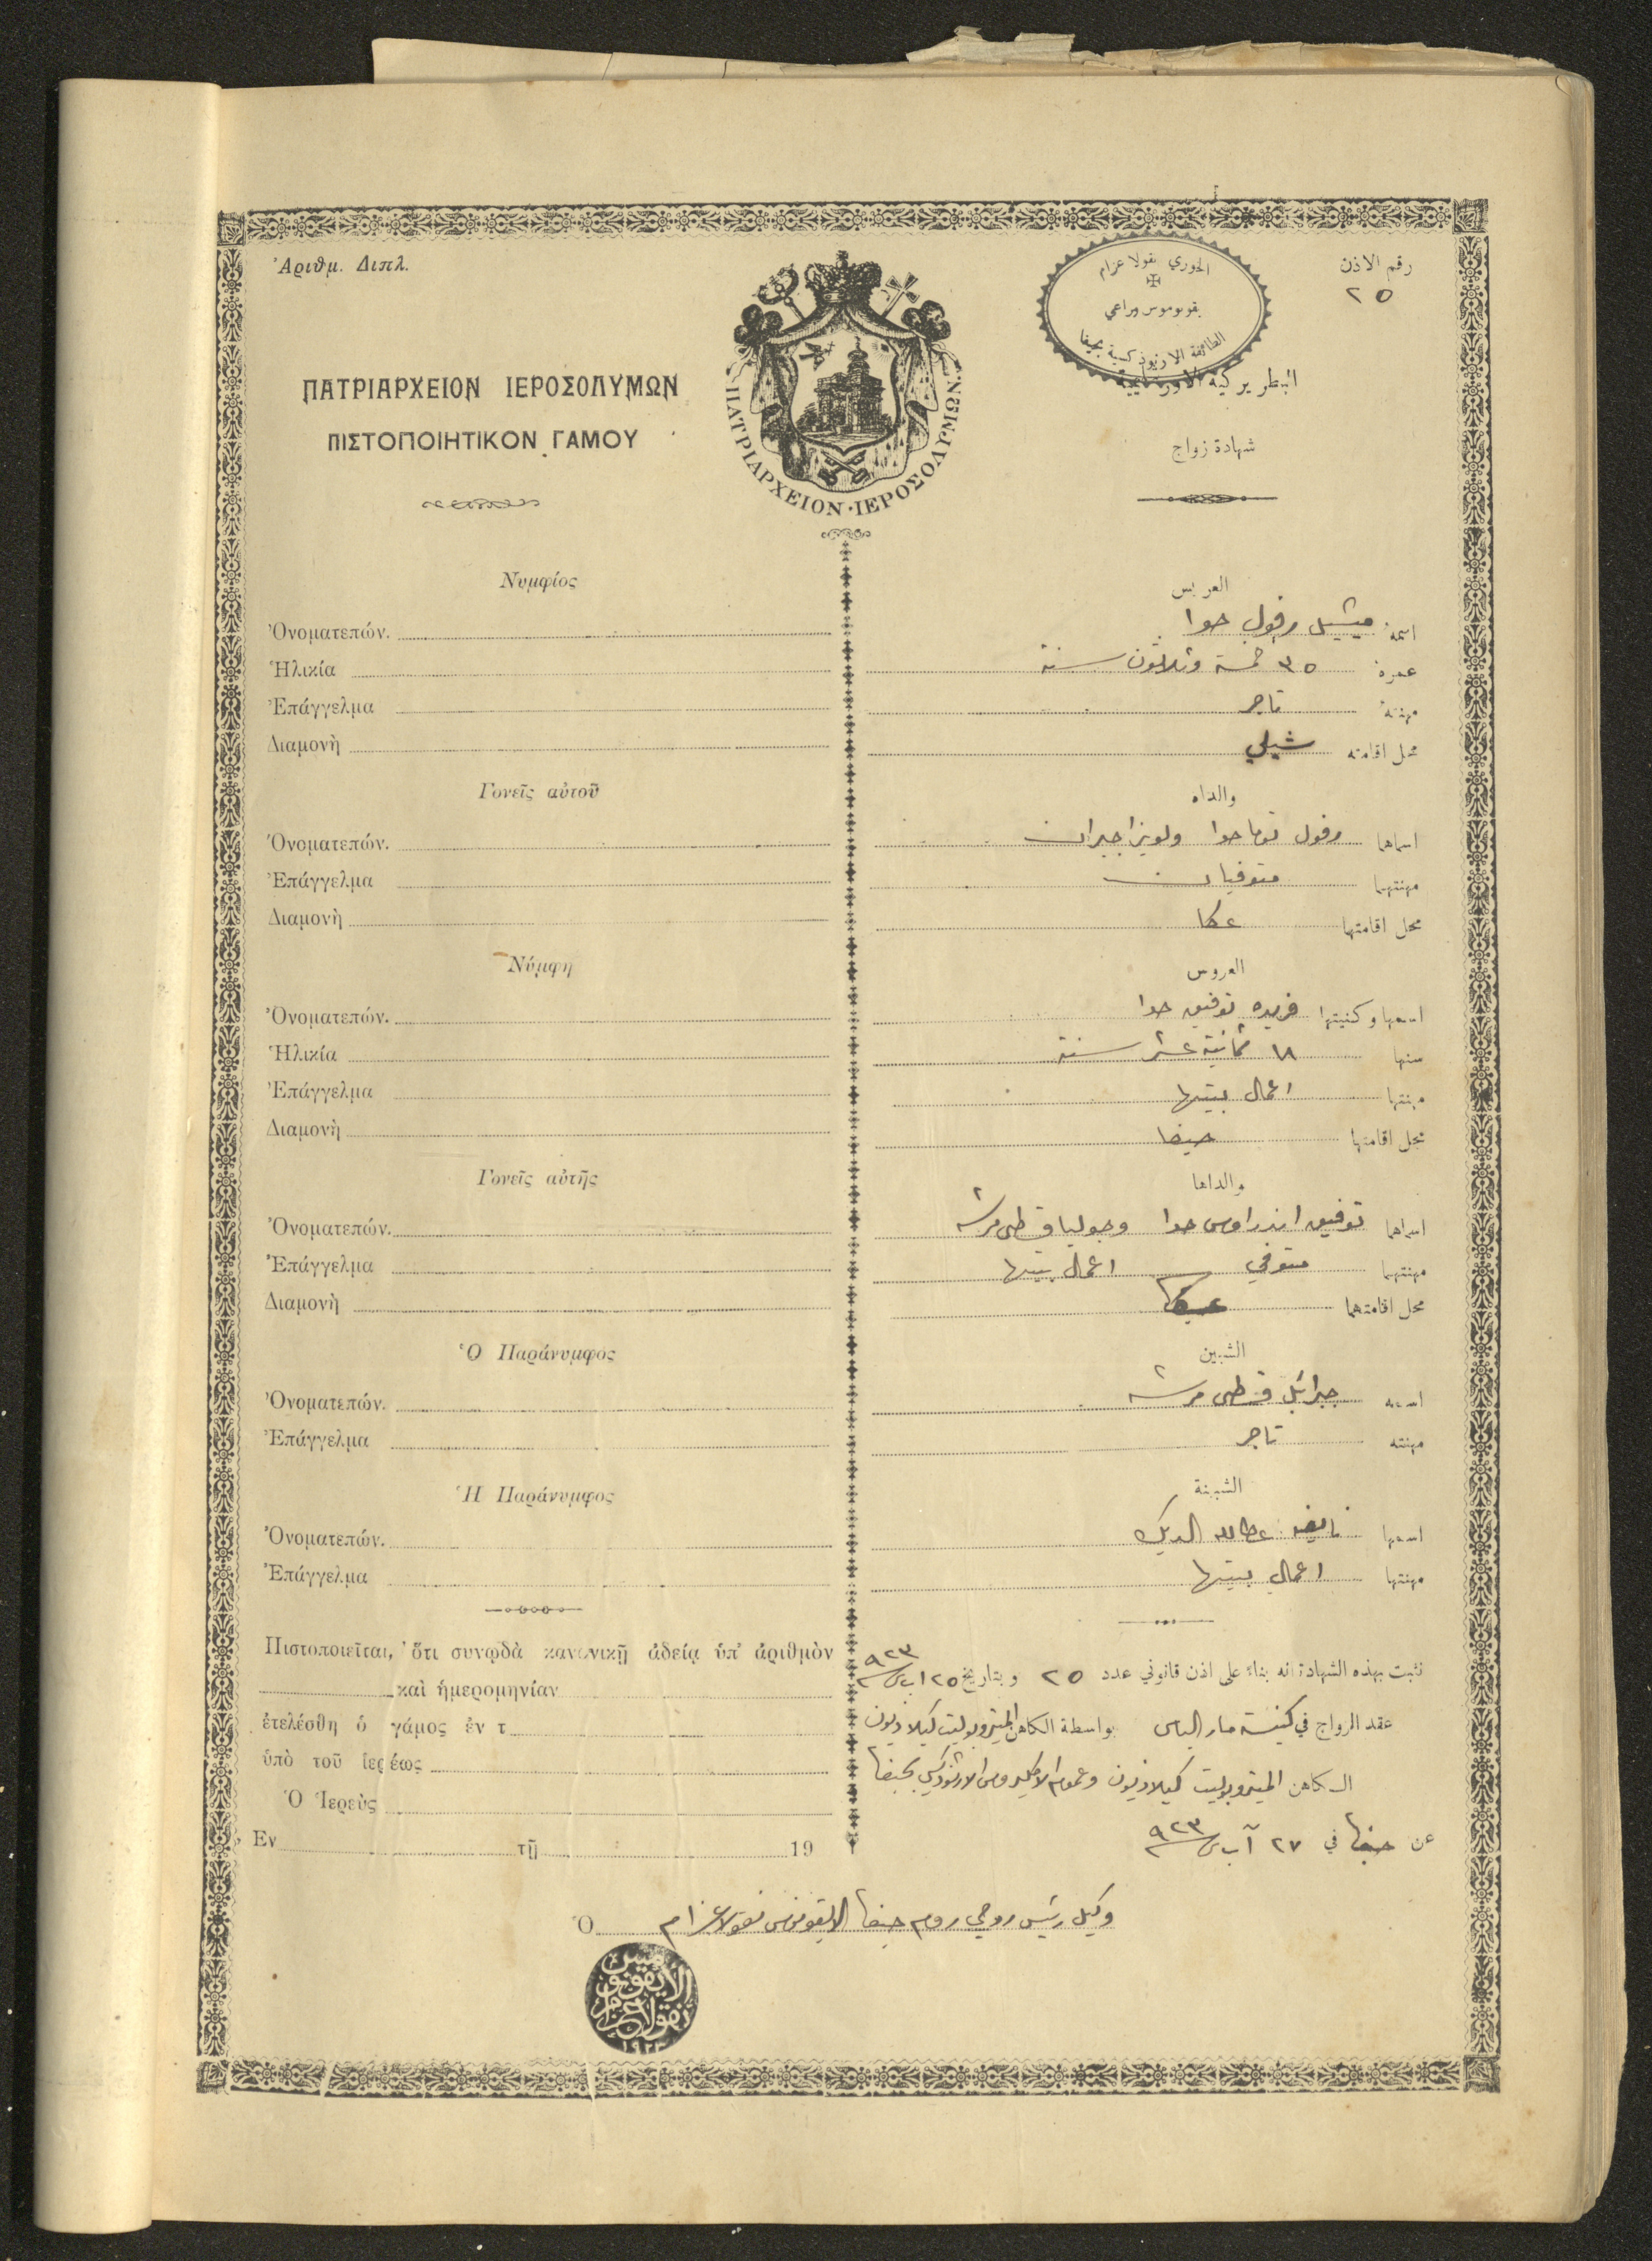 Ἀριθμ. Διπλ.
رقم الاذن
٢٥
الخوري نقولا عزام
يقونوموس وراعي
الطائفة الارثوذكسية بحيفا
ΠΑΤΡΙΑΡΧΕΙΟΝ ΙΕΡΟΣΟΛΥΜΩΝ
البطريركية الاورشليمية
ΠΙΣΤΟΠΟΙΗΤΙΚΟΝ ΓΑΜΟΥ
شهادة زواج
ΠΑΤΡΙΑΡΧΕΙΟΝ·ΙΕΡΟΣΟΛΥΜΩΝ
Νυμφίος
العريس
Ὀνοματεπών.
اسمه ميشيل رفول حوا
Ἡλικία
عمره ٣٥ خمسة وثلاثون سنة
Ἐπάγγελμα
مهنته تاجر
Διαμονὴ
محل اقامته شيلي
Γονεῖς αὐτοῦ
والداه
Ὀνοματεπών.
اسماهما رفول توما حوا ولويزا جبران
Ἐπάγγελμα
مهنتهما متوفيان
Διαμονὴ
محل اقامتهما عكا
Νύμφη
العروس
Ὀνοματεπών.
اسمها وكنيتها فريده توفيق حوا
Ἡλικία
سنها ١٨ ثمانية عشر سنة
Ἐπάγγελμα
مهنتها اعمال بيتها
Διαμονὴ
محل اقامتها حيفا
Γονεῖς αὐτῆς
والداها
Ὀνοματεπών.
اسماهما توفيق اندراوس حوا وجوليا قسطي مرشه
Ἐπάγγελμα
مهنتهما متوفي اعمال بيتها
Διαμονὴ
محل اقامتهما عكا
Ὁ Παράνυμφος
الشبين
Ὀνοματεπών.
اسمه جبرائيل قسطي مرشه
Ἐπάγγελμα
مهنته تاجر
Ἡ Παράνυμφος
الشبينة
Ὀνοματεπών.
اسمها نايفه عطالله الديك
Ἐπάγγελμα
مهنتها اعمال بيتها
Πιστοποιεῖται, ὅτι συνῳδὰ κανονικῇ ἀδείᾳ ὑπ' ἀριθμὸν
καὶ ἡμερομηνίαν
ἐτελέσθη ὁ γάμος ἐν τ
ὑπὸ τοῦ ἱερέως
Ὁ Ἱερεὺς
Ἐν τῇ 19
نثبت بهذه الشهادة انه بناء على اذن قانوني عدد ٢٥ وبتاريخ ٢٥ اب ٩٢٣
عقد الزواج في كنيسة مار الياس بواسطة الكاهن الميتروبوليت كيلاديون
الكاهن الميتروبوليت كيلاديون وعموم الاكليروس الارثوذكسي بحيفا
عن حيفا في ٢٧ آب ٩٢٣
Ὁ وكيل رئيس روحي روم حيفا الايقونومس نقولا عزام
الايقونوميس
نقولا عزام